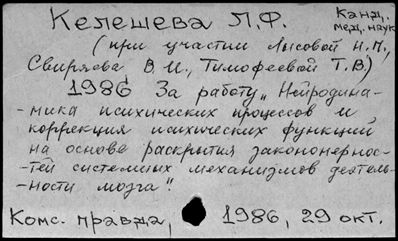 Келешева Л.Ф. Канд. мед. наук
(при участии Лысовой Н.М.,
Свиряева В.И., Тимофеевой Т.В)
1986 За работу „Нейродина-
-мика психических процессов и
коррекция психических функций
на основе раскрытия закономернос-
-тей системных механизмов деятель-
-ности мозга".
Комс. правда, 1986, 29 окт.